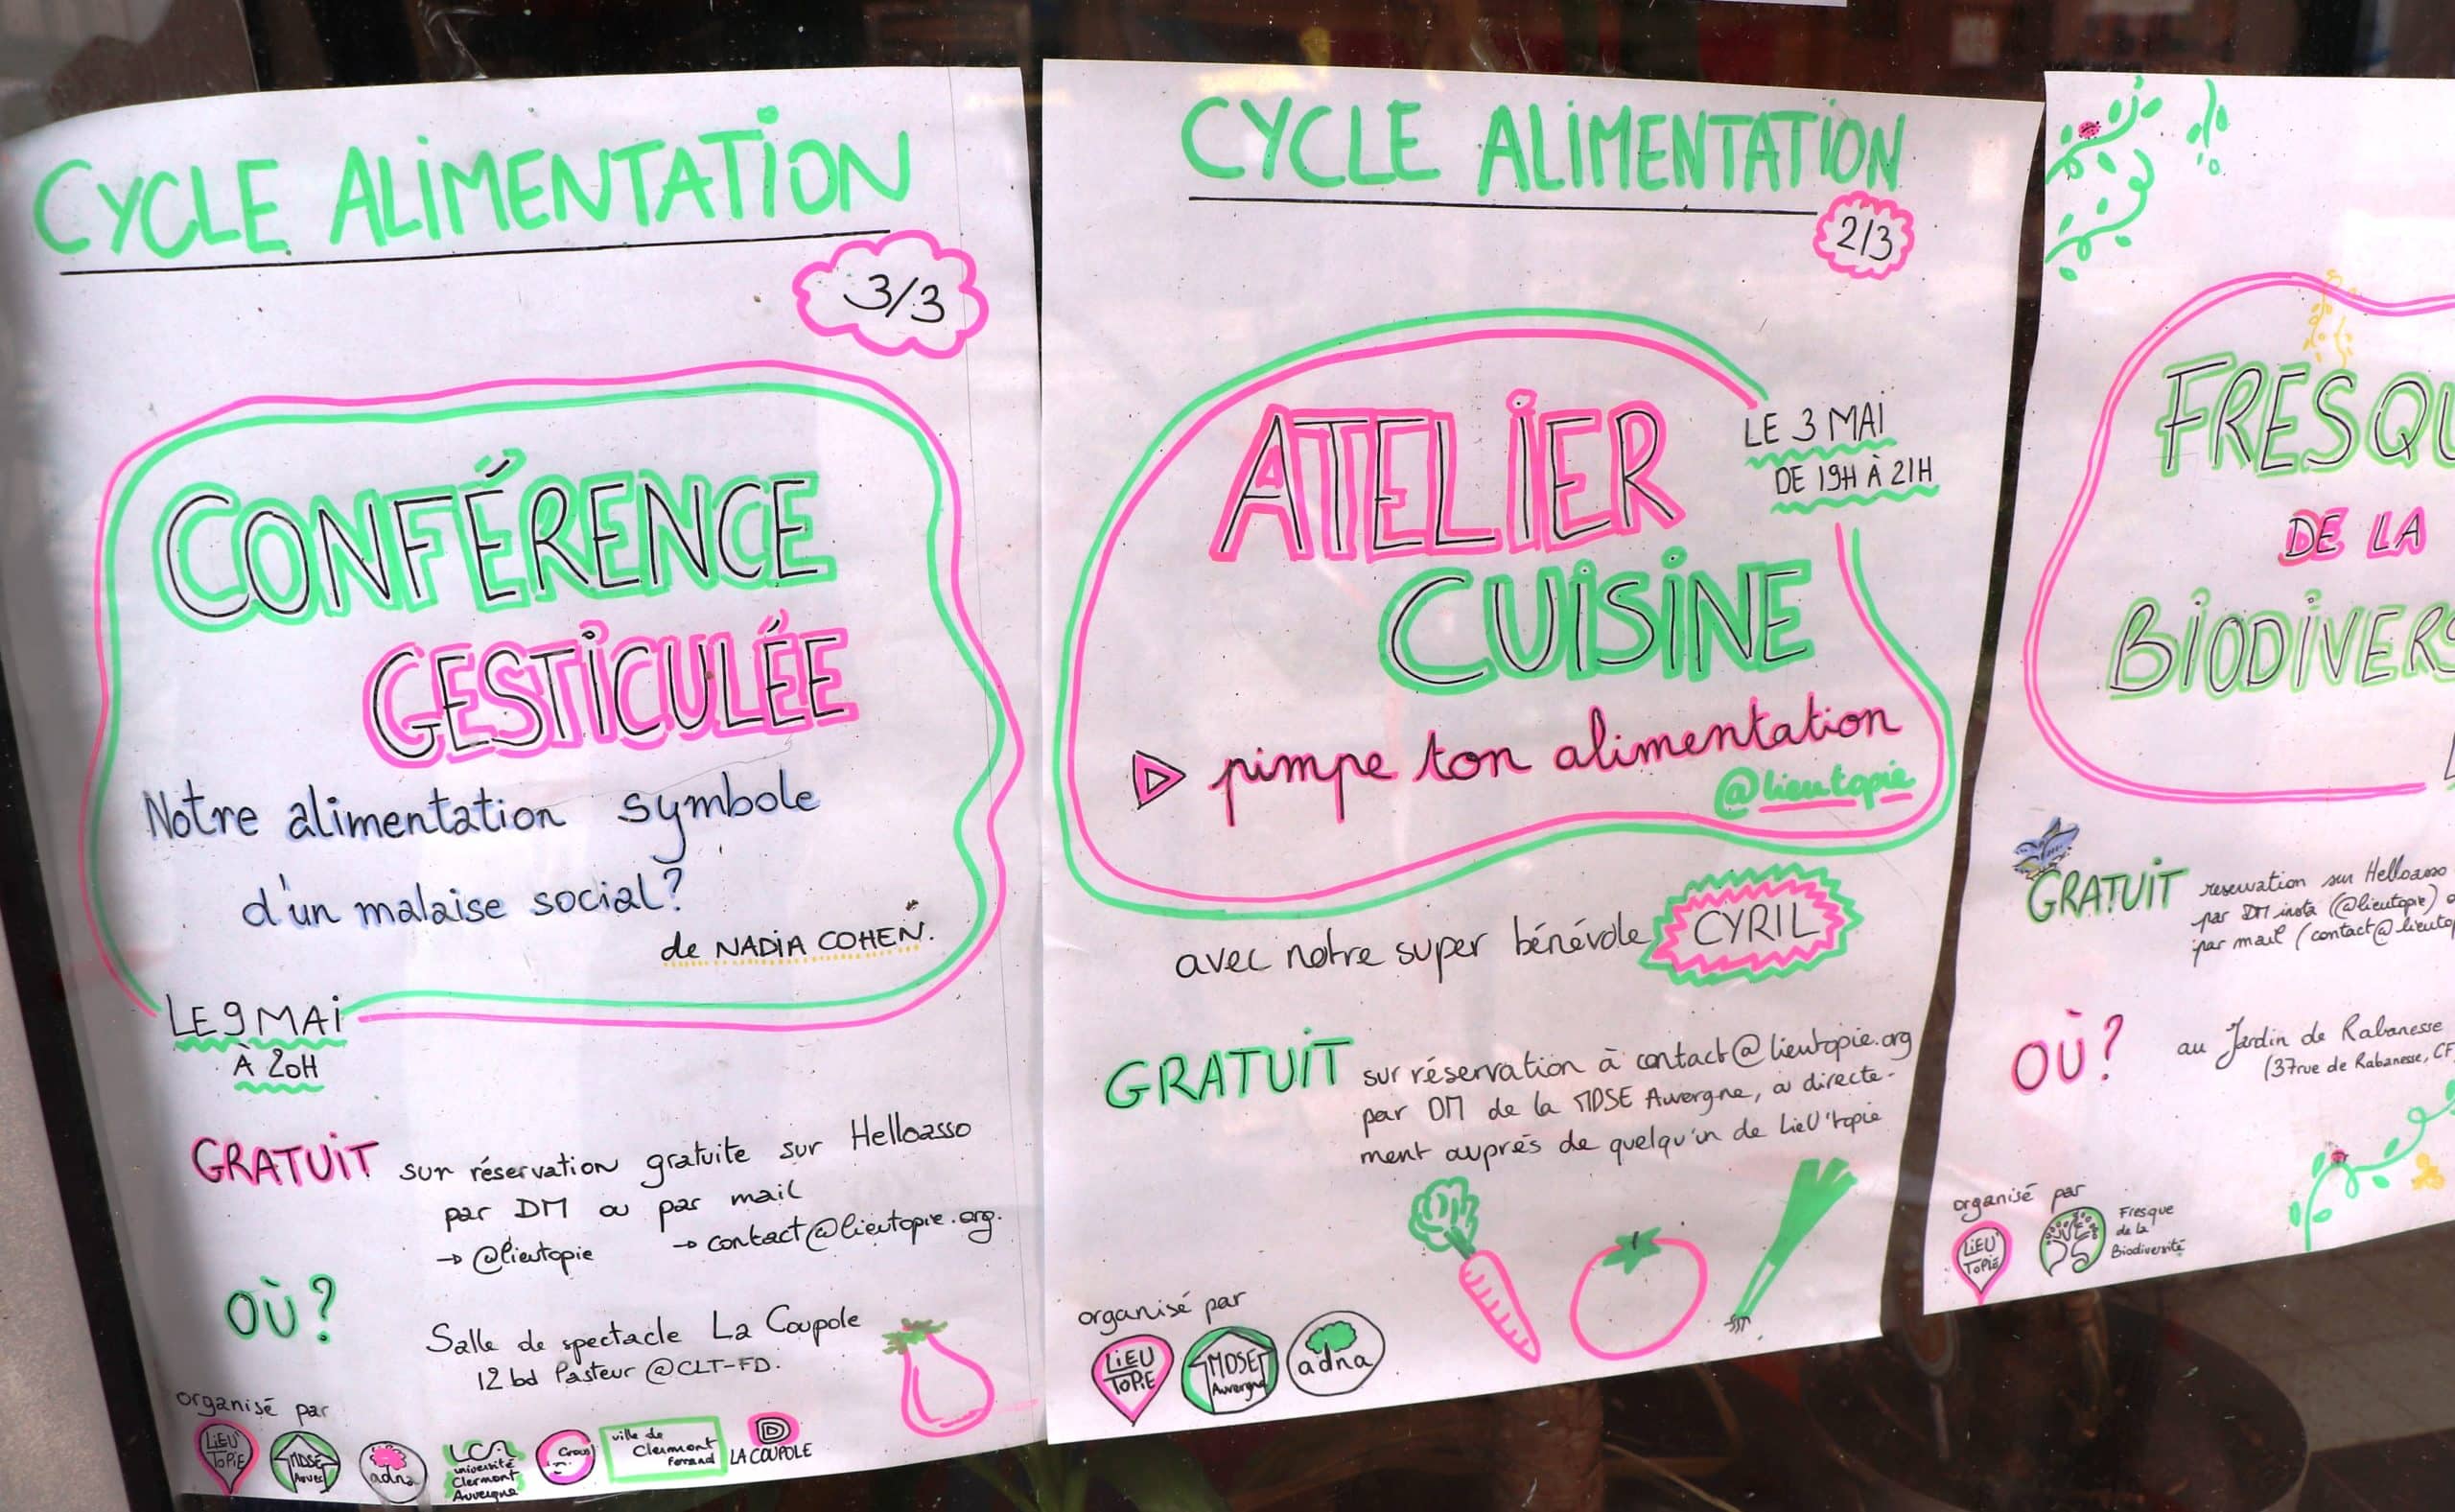 CYCLE ALIMENTATION
3/3
CONFÉRENCE
GESTICULÉE
Notre alimentation symbole
d'un malaise social?
de NADIA COHEN.
LE 9 MAI
À 20H
GRATUIT sur réservation gratuite sur Helloasso
par DM ou par mail
→ @lieutopie → contact@lieutopie.org.
OÙ?
Salle de spectacle La Coupole
12 bd Pasteur @CLT-FD.
organisé par
LiEU'
TOPiE
MDSE
Auver
adna
UCA
université
Clermont
Auvergne
Crous
ville de
Clermont
Ferrand
LA COUPOLE
CYCLE ALIMENTATION
2/3
ATELIER
CUISINE
LE 3 MAI
DE 19H À 21H
pimpe ton alimentation
@lieutopie
avec notre super bénévole CYRIL
GRATUIT sur réservation à contact@lieutopie.org
par DM de la MDSE Auvergne, ou directe-
ment auprès de quelqu'un de LieU'topie
organisé par
LiEU
TOPiE
MDSE
Auvergne
adna
FRESQU
DE LA
BIODIVERS
GRATUIT reservation sur Helloasso
par DM insta (@lieutopie) o
par mail (contact@lieutop
OÙ?
au Jardin de Rabanesse
(37 rue de Rabanesse, CF
organisé par
LiEU'
TOPiE
Fresque
de la
Biodiversité